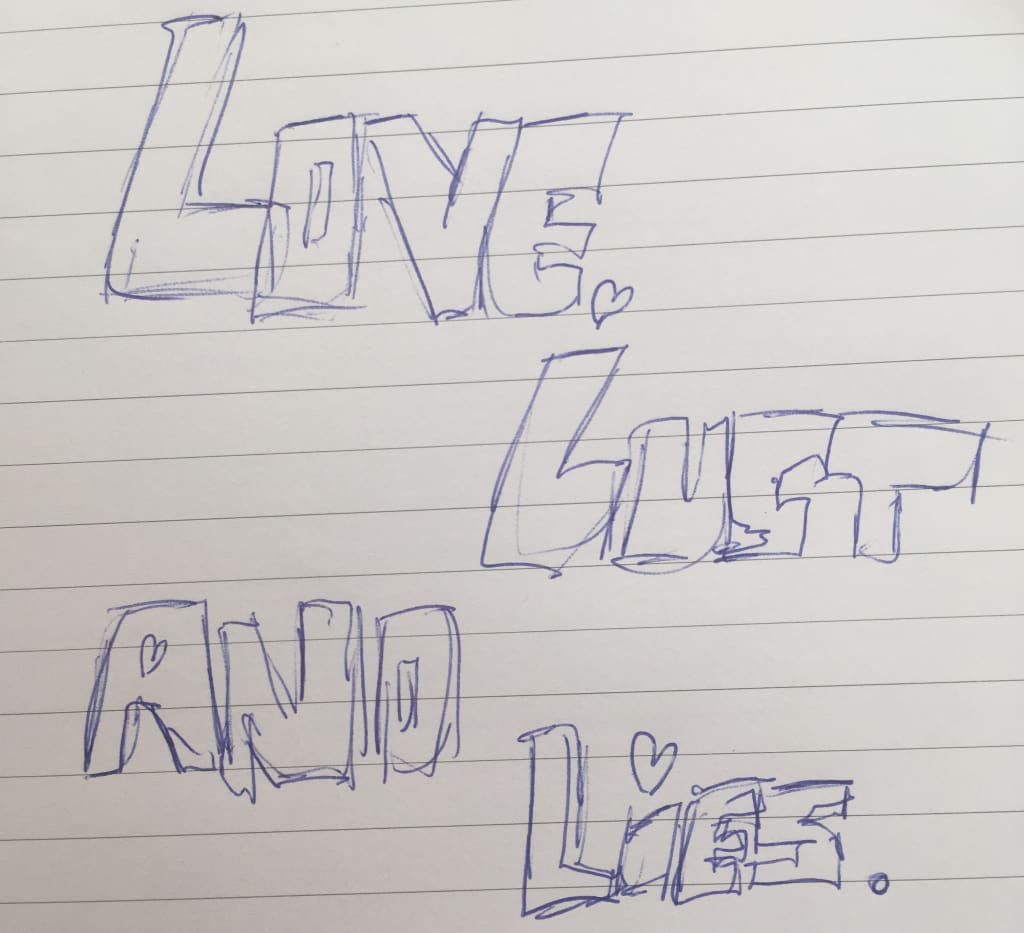 LOVE.
LUST
AND
LiES.